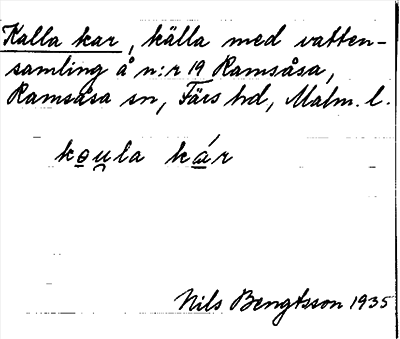 Kalla kar, källa med vatten-
samling å n:r 19 Ramsåsa,
Ramsåsa sn, Färs hd, Malm. l.
koula kár
Nils Bengtsson 1935